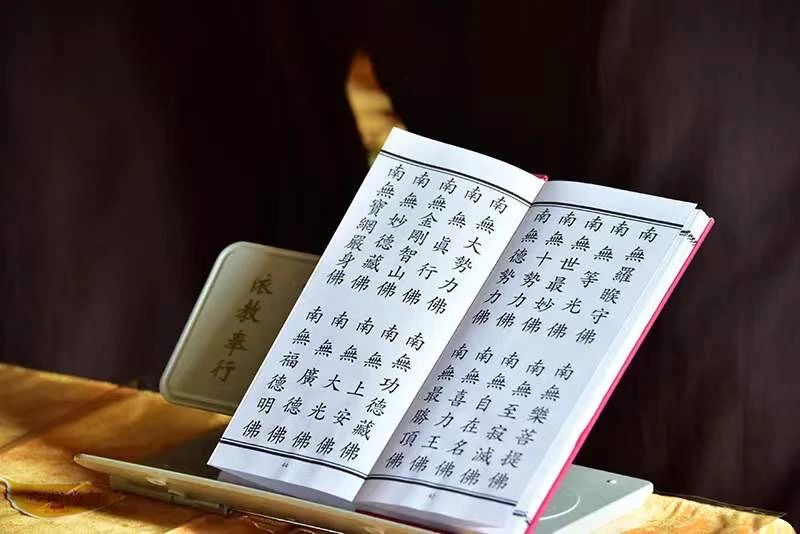 南無羅睺守佛
南無樂菩提佛
南無等光佛
南無至寂滅佛
南無世最妙佛
南無自在名佛
南無十勢力佛
南無喜力王佛
南無德勢力佛
南無最勝頂佛
南無大勢力佛
南無功德藏佛
南無眞行佛
南無上安佛
南無金剛智山佛
南無大光佛
南無妙德藏佛
南無廣德佛
南無寶網嚴身佛
南無福德明佛
44
依教奉行